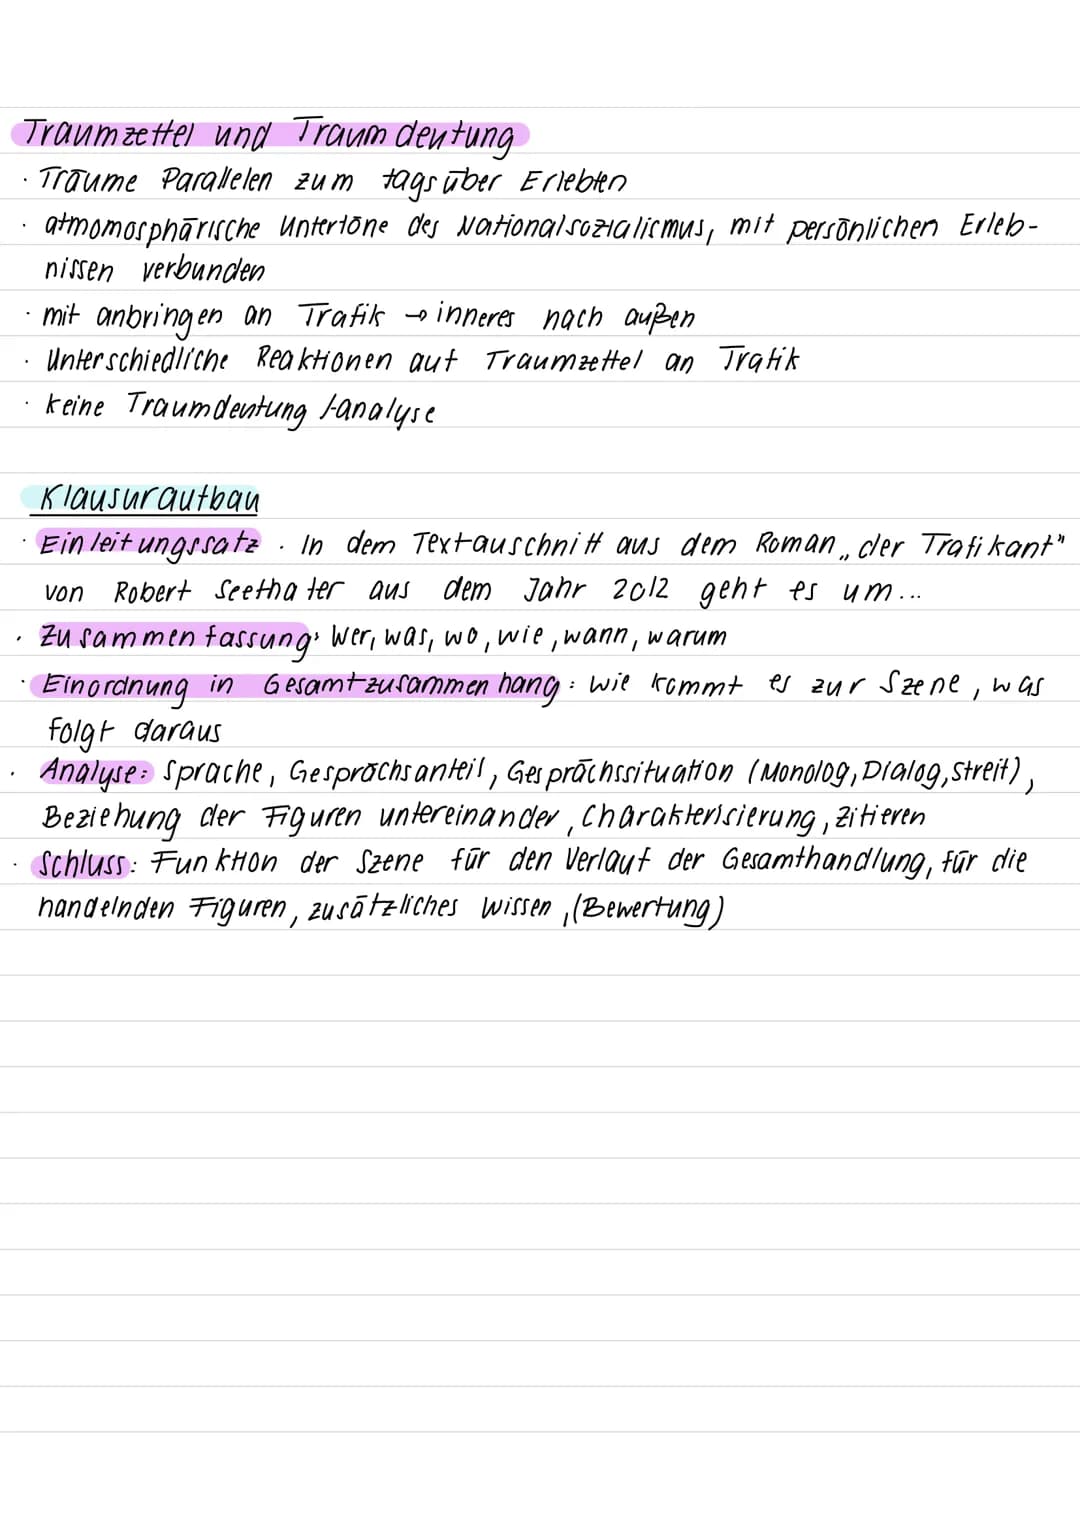 Traumzettel und Traumdeutung
· Träume Parallelen zum tagsüber Erlebten
· atmomosphärische Untertöne des Nationalsozialismus, mit persönlichen Erleb-
nissen verbunden
· mit anbringen an Trafik → inneres nach außen
· Unterschiedliche Reaktionen auf Traumzettel an Trafik
· keine Traumdeutung /-analyse
Klausuraufbau
· Einleitungssatz . In dem Textauschnitt aus dem Roman „der Trafikant"
von Robert Seethaler aus dem Jahr 2012 geht es um...
· Zusammenfassung: Wer, was, wo, wie, wann, warum
· Einordnung in Gesamtzusammenhang: wie kommt es zur Szene, was
folgt daraus
· Analyse: Sprache, Gesprächsanteil, Gesprächssituation (Monolog, Dialog, streit),
Beziehung der Figuren untereinander, Charakterisierung, zitieren
· Schluss: Funktion der Szene für den Verlauf der Gesamthandlung, für die
handelnden Figuren, zusätzliches wissen, (Bewertung)